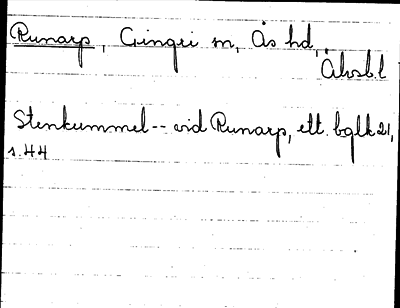 Runarp, Gingri sn, Ås hd,
Älvsb. l
Stenkummel -- vid Runarp, ett. bglk 21,
s. 44